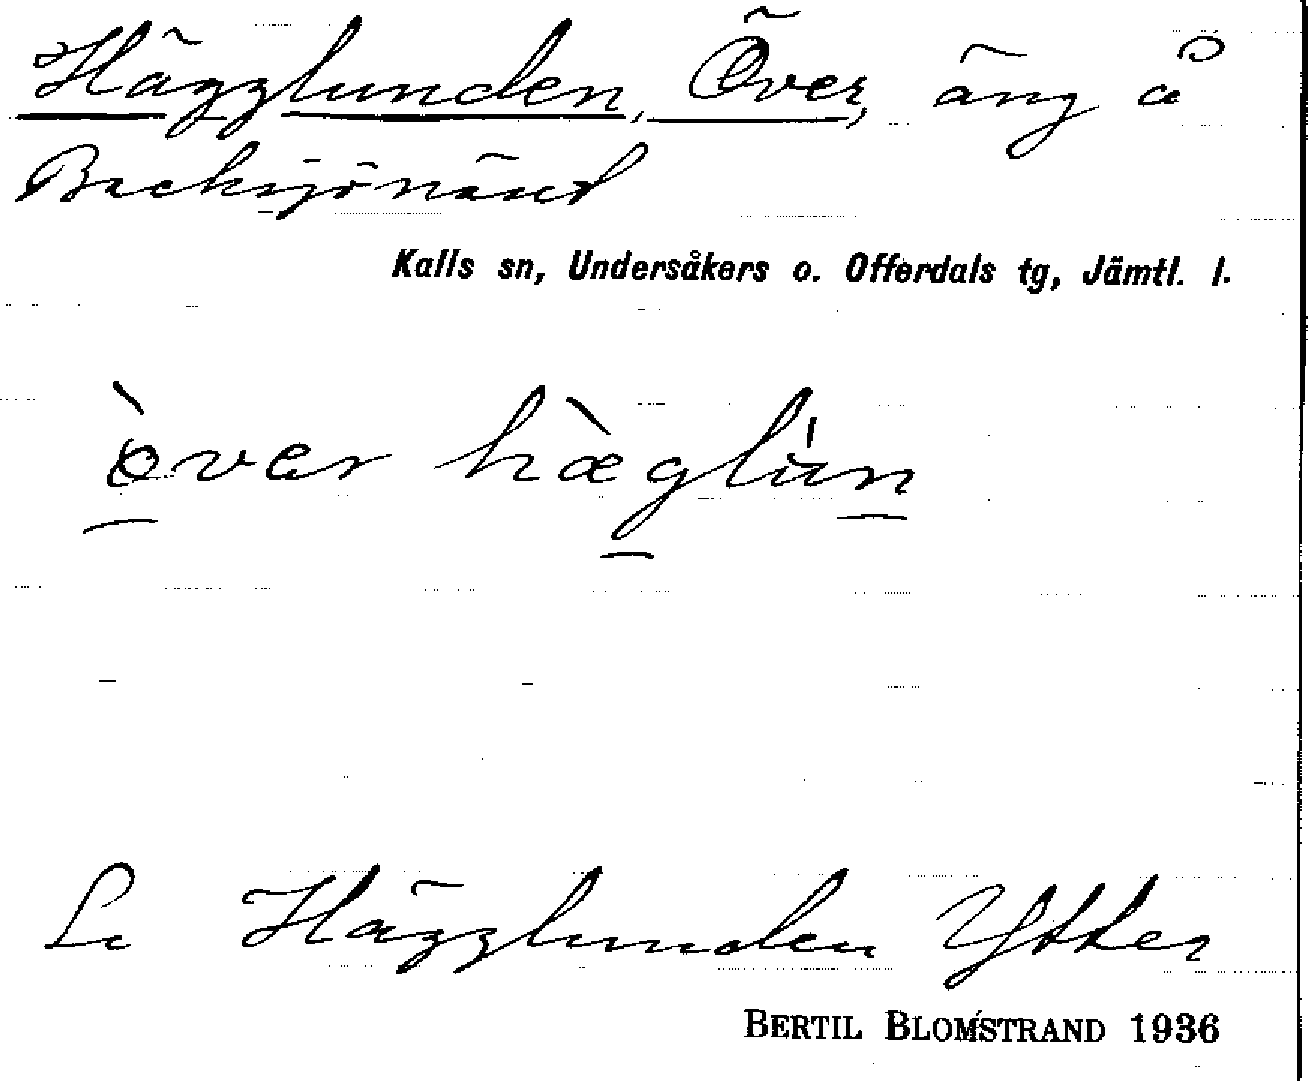 Hägglunden, Över, äng å
Backsjönäset
Kalls sn, Undersåkers o. Offerdals tg, Jämtl. l.
òver hæ̀glùn
Se Hägglunden Ytter
BERTIL BLOMSTRAND 1936